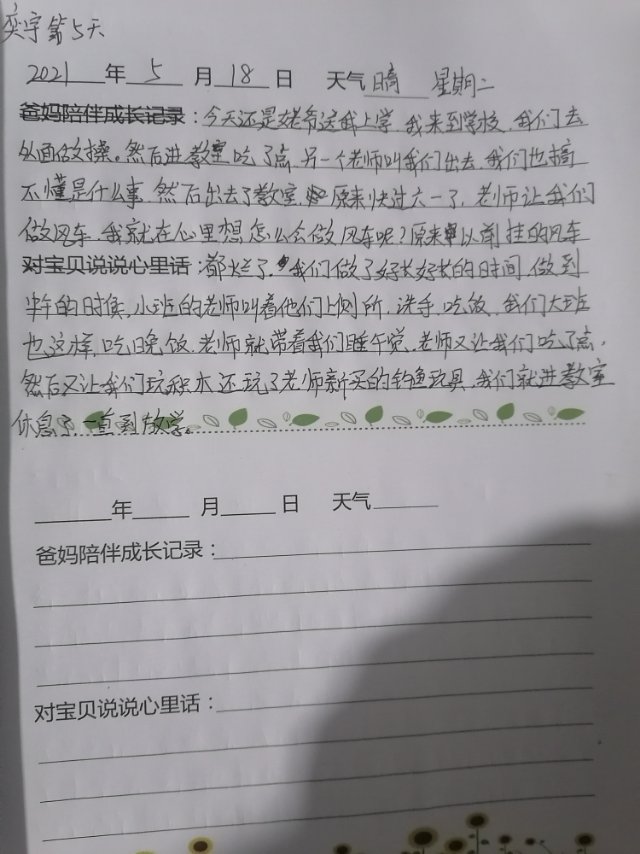 奕宇第5天
2021年5月18日 天气晴 星期二
爸妈陪伴成长记录：今天还是姥爷送我上学，我来到学校，我们去
外面做操。然后进教室吃了点，另一个老师叫我们出去，我们也搞
不懂是什么事，然后出去了教室，原来快过六一了，老师让我们
做风车，我就在心里想怎么会做风车呢？原来以前挂的风车
对宝贝说说心里话：都烂了，我们做了好长好长的时间，做到
中午的时候，小班的老师叫着他们上厕所，洗手，吃饭，我们大班
也这样，吃完饭，老师就带着我们睡午觉，老师又让我们吃了点，
然后又让我们玩积木还玩了老师新买的钓鱼玩具，我们就进教室
休息了，一直到放学。
年 月 日 天气
爸妈陪伴成长记录：
对宝贝说说心里话：